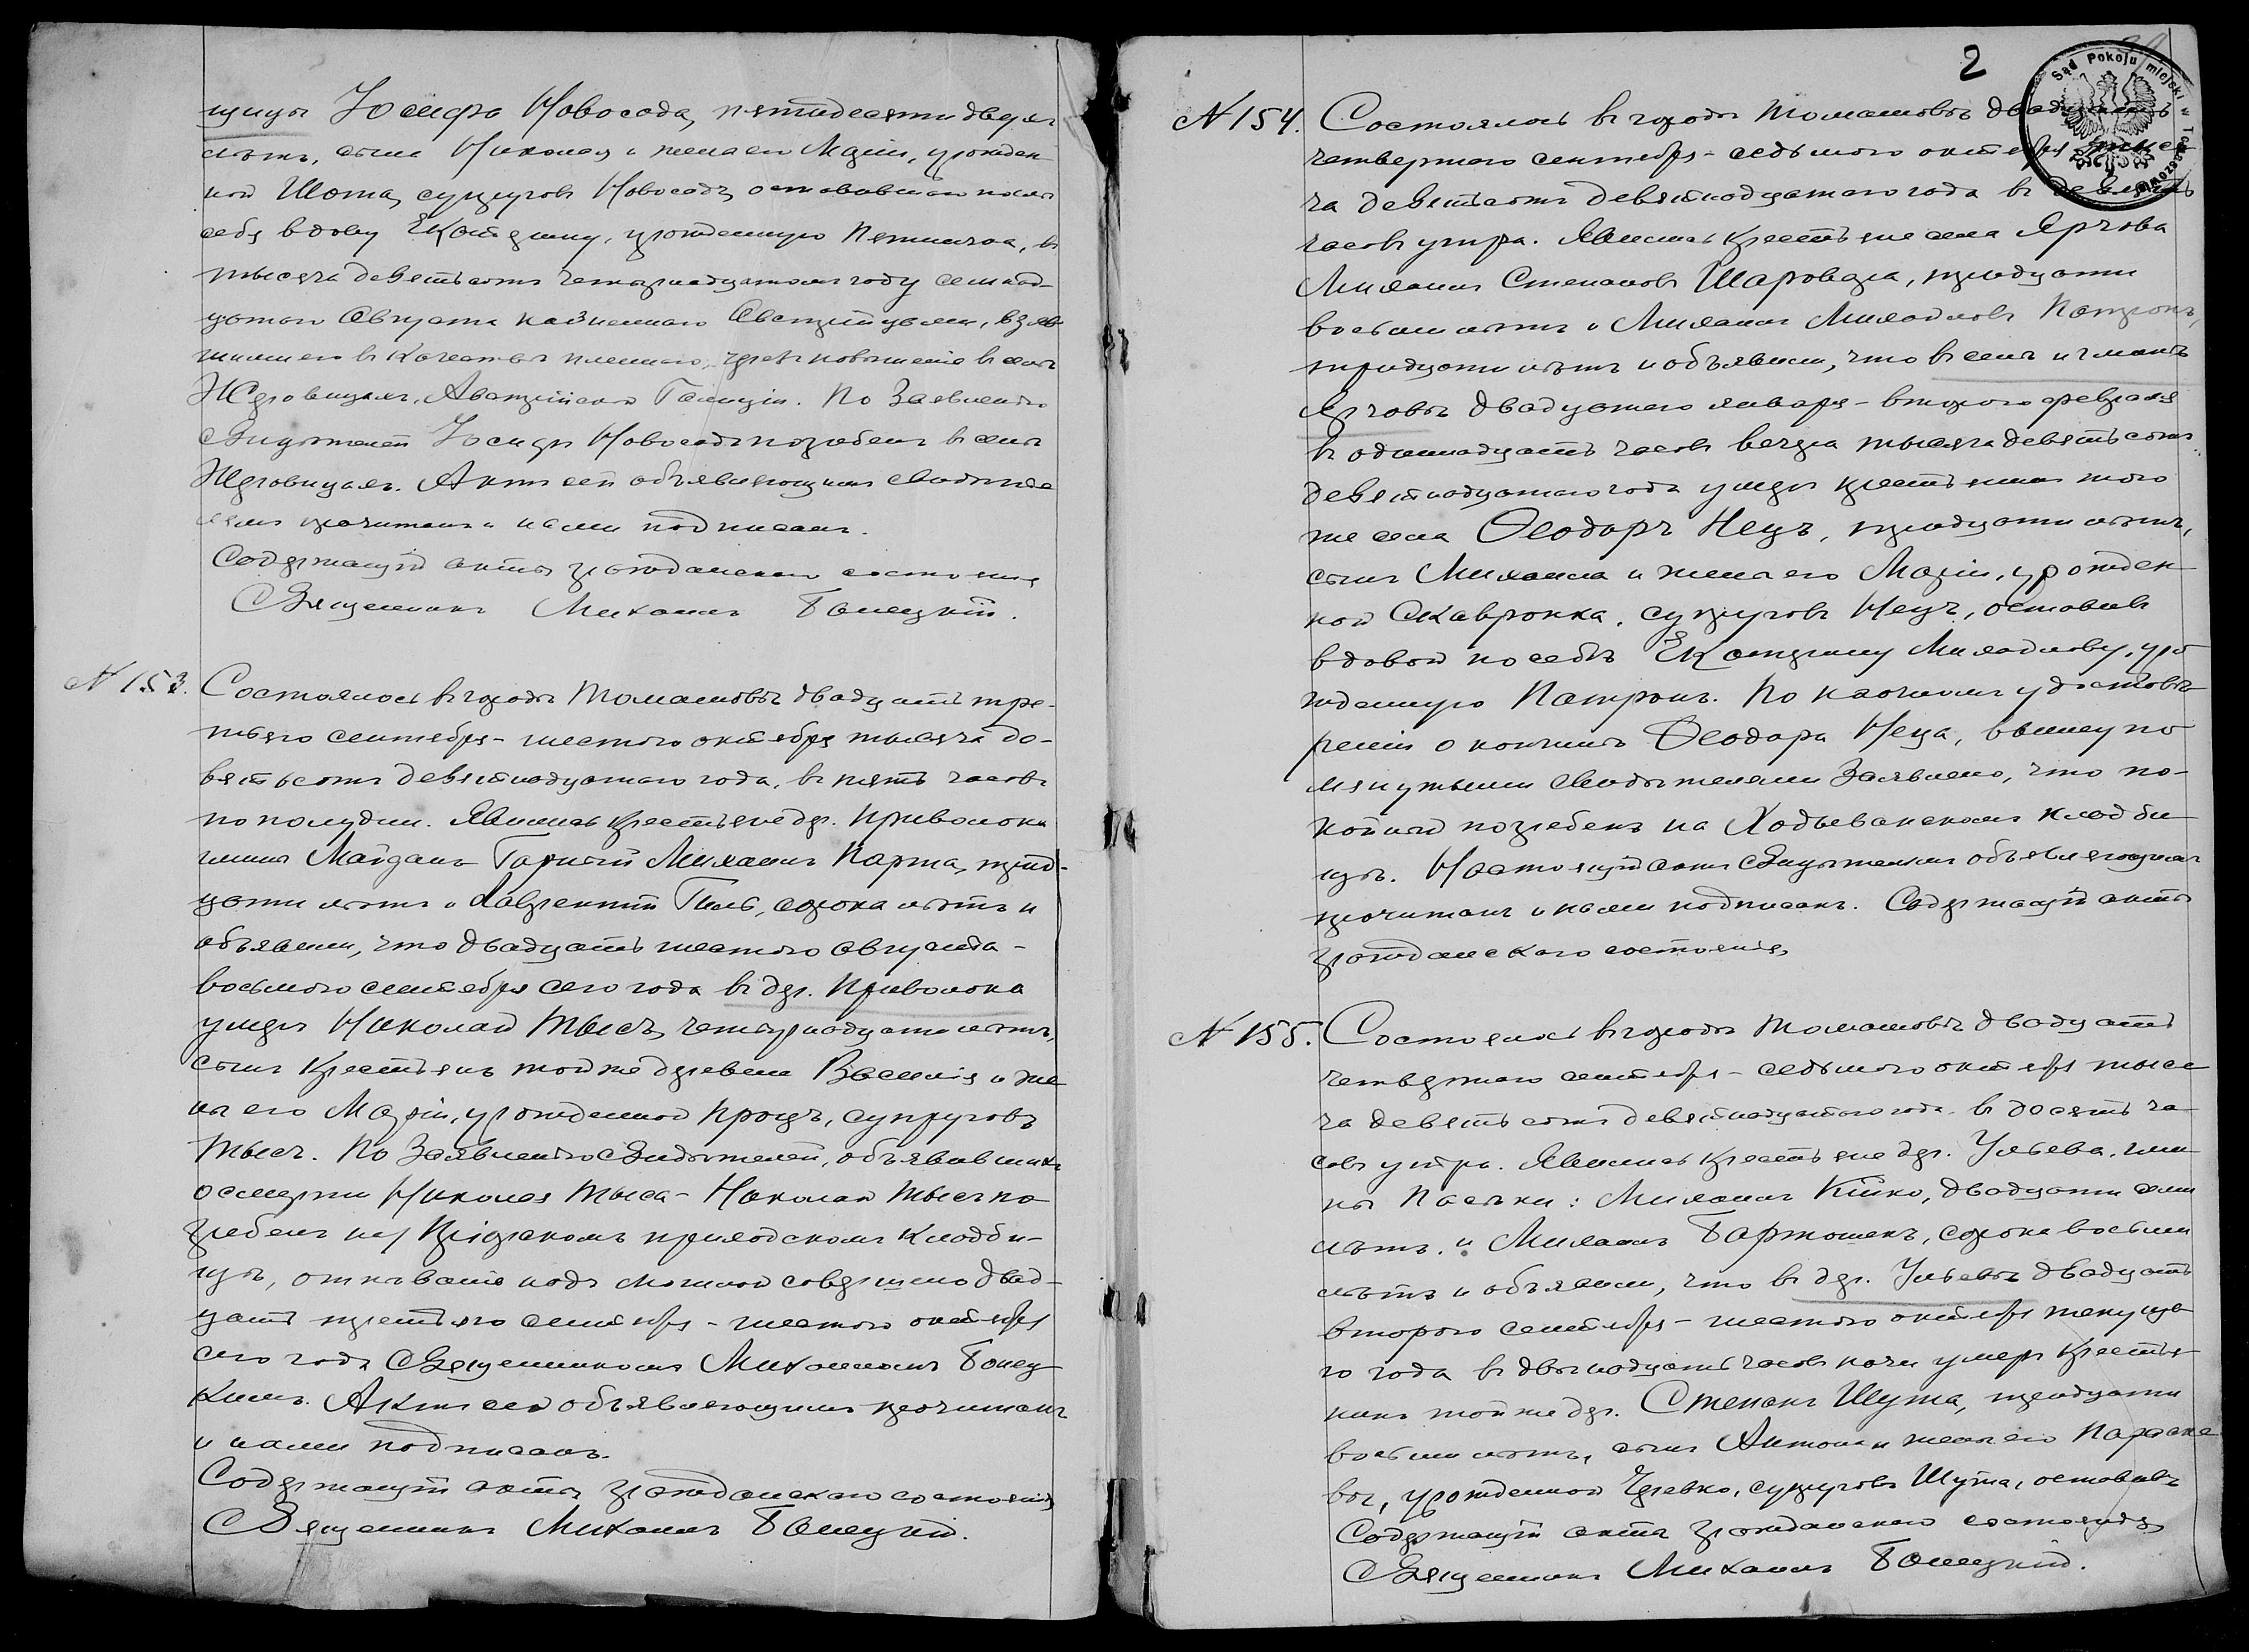 щицы Іосифъ Новосада, пятидесяти двухъ
лѣтъ, сынъ Николая и жены его Маріи, урожден-
ной Шота, супруговъ Новосадъ, оставившаго послѣ
себя вдову Екатерину, урожденную Пятничка, въ
тысяча девятьсотъ четырнадцатомъ году семнад-
цатаго Августа казненнаго Австрійцами, взяв-
шими его въ качествѣ плѣннаго, чрезъ повѣшеніе въ селѣ
Австрійской Галиціи. По заявленію
Свидѣтелей Іосифъ Новосадъ погребенъ въ селѣ
Актъ сей объявляющимъ свидѣте
лямъ прочитанъ и нами подписанъ.
Содержащій акты гражданскаго состоянія
Священникъ Михаилъ Бонецкій.
N 153. Состоялось въ городѣ Томашовѣ двадцать тре-
тьяго сентября - шестого октября тысяча де-
вятьсотъ девятнадцатаго года, въ пять часовъ
по полудни. Явились крестьяне дер. Приволока
гмины Майданъ Горный Михаилъ Парта, трид-
цати лѣтъ и Лаврентій Гиль, сорока лѣтъ и
объявили, что двадцать шестого августа -
восьмого сентября сего года въ дер. Приволока
умеръ Николай Тысъ, четырнадцати лѣтъ,
сынъ крестьянъ той же деревни Василія и же
ны его Маріи, урожденной Процъ, супруговъ
Тысъ. По заявленію Свидѣтелей, объявившихъ
о смерти Николая Тыса - Николай Тысъ по
гребенъ на приходскомъ кладби-
щѣ, отпѣваніе надъ могилой совершено двад-
цать третьяго сентября - шестого октября
сего года Священникомъ Михаиломъ Бонец-
кимъ. Актъ сей объявляющимъ прочитанъ
и нами подписанъ.
Содержащій акты гражданскаго состоянія
Священникъ Михаилъ Бонецкій.
2
Sąd Pokoju miejski w Tomaszowie
N 154. Состоялось въ городѣ Томашовѣ двадцать
четвертаго сентября - седьмого октября тыся
ча девятьсотъ девятнадцатаго года въ девять
часовъ утра. Явились крестьяне села Ярчова
Михаилъ Степановъ Шаровара, тридцати
восьми лѣтъ и Михаилъ Михайловъ Патронъ,
тридцати лѣтъ и объявили, что въ селѣ и гминѣ
Ярчовѣ двадцатаго января - второго февраля
въ одиннадцать часовъ вечера тысяча девятьсотъ
девятнадцатаго года умеръ крестьянинъ того
же села Ѳеодоръ Нецъ, тридцати лѣтъ,
сынъ Михаила и жены его Маріи, урожден-
ной Скавронка, супруговъ Нецъ, оставивъ
вдовой по себѣ Екатерину Михайлову, уро
жденную Патронъ. По наочномъ удостовѣ-
реніи о кончинѣ Ѳеодора Неца, вышеупо
мянутыми Свидѣтелями заявлено, что по-
койный погребенъ на Ходыванскомъ кладби-
щѣ. Настоящій актъ Свидѣтелямъ объявляющимъ
прочитанъ и нами подписанъ. Содержащій акты
гражданскаго состоянія
N 155. Состоялось въ городѣ Томашовѣ двадцать
четвертаго сентября - седьмого октября тыся
ча девятьсотъ девятнадцатаго года въ десять ча
совъ утра. Явились крестьяне дер. Ульева, гми-
ны Пасѣки: Михаилъ Кійко, двадцати семи
лѣтъ, и Михаилъ Бартошекъ, сорока восьми
лѣтъ и объявили, что въ дер. Ульевѣ двадцать
второго сентября - шестого октября текуще
го года въ двѣнадцать часовъ ночи умеръ крестья
нинъ той же дер. Степанъ Шута, тридцати
восьми лѣтъ, сынъ Антона и жены его Параске
вы, урожденной Черевко, супруговъ Шута, оставивъ
Содержащій акты гражданскаго состоянія
Священникъ Михаилъ Бонецкій.